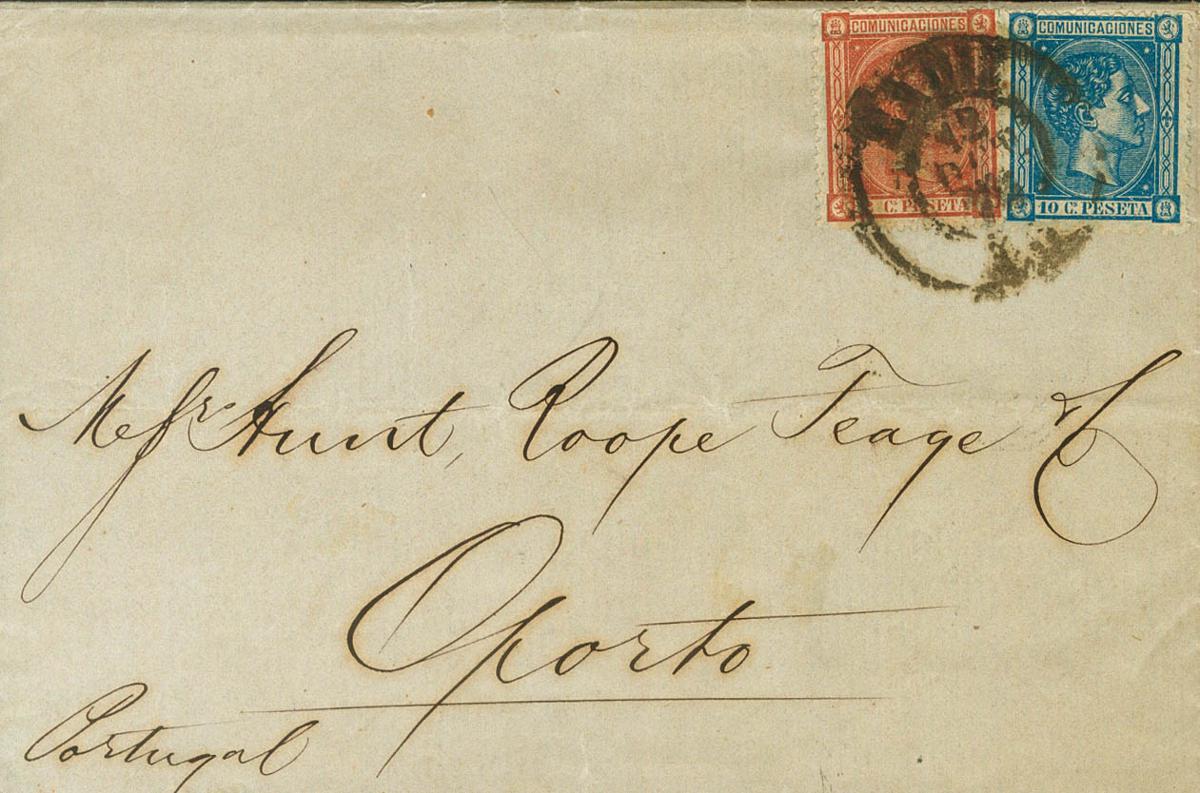 COMUNICACIONES COMUNICACIONES
C. PESETA 10 C. PESETA
Messrs Hunt, Roope Teage & C
Oporto
Portugal